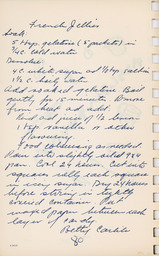 French Jellies
Soak
5 tbsp. gelatine (5 packets) in
3/4 c. cold water
Dissolve
4 c. white sugar and 1/2 tsp salt in
1 1/2 c. hot water
Add soaked gelatine Boil
gently for 15 minutes Remove
from heat and add
Rind and juice of 1/2 lemon
1 tsp. vanilla or other
flavouring
Food colouring as needed
Pour into slightly oiled 9x9
pan. Cool 24 hours. Cut into
squares rolling each square
in icing sugar. Dry 24 hours
before storing in tightly
covered container. Put
waxed paper between each
layer of candy.
Betty Carlile